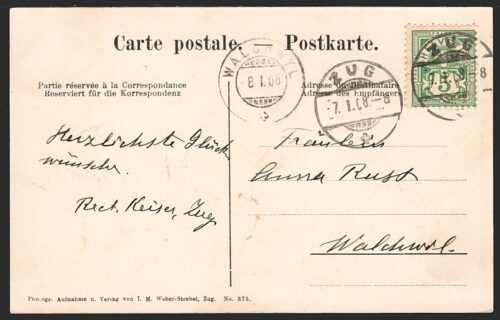 Carte postale. Postkarte.
Partie réservée à la Correspondance
Reserviert für die Korrespondenz
Adresse du Destinataire
Adresse des Empfängers
WALCHWYL
8.I.08
ZUG
7.I.08.-8
ZUG
7.I.08 8
5
Herzlichste Glück-
wünsche.
Rect. Keiser, Zug
Fräulein
Anna Rust
Walchwil.
Photogr. Aufnahme u. Verlag von I. M. Weber-Strebel, Zug. No. 375.